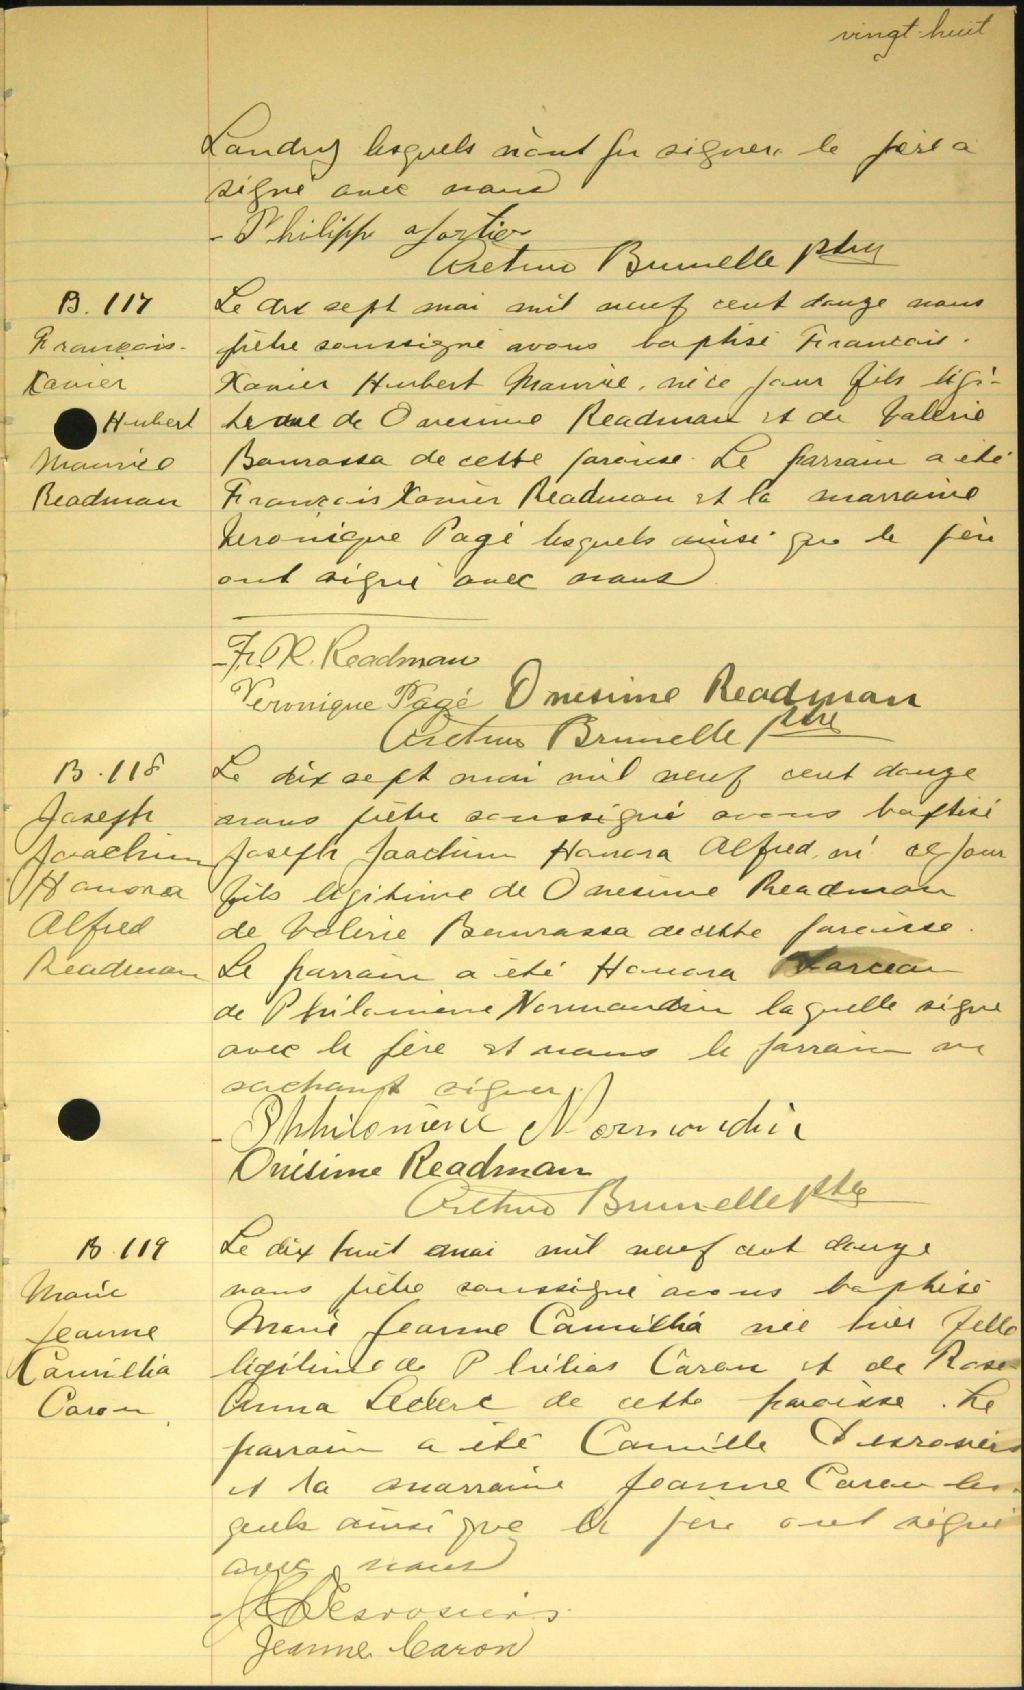 vingt-huit
Landry lesquels n'ont pu signer. le père a
signé avec nous
- Philippe Fortier
Arthur Brunelle ptre
B. 117
François-
Xavier
Hubert
Maurice
Readman
Le dix sept mai mil neuf cent douze nous
prêtre soussigné avons baptisé François.
Xavier Hubert Maurice, né ce jour fils légi-
time de Onesime Readman et de Valérie
Bourassa de cette paroisse. Le parrain a été
François Xavier Readman et la marraine
Veronique Pagé lesquels ainsi que le père
ont signé avec nous
- Fr. X. Readman
Veronique Pagé Onesime Readman
Arthur Brunelle ptre
B. 118
Joseph
Joachim
Honora
Alfred
Readman
Le dix sept mai mil neuf cent douze
nous prêtre soussigné avons baptisé
Joseph Joachim Honora Alfred, né ce jour
fils légitime de Onesime Readman
de Valérie Bourassa de cette paroisse.
Le parrain a été Honora Marceau
de Philomène Normandin laquelle signe
avec le père et nous le parrain ne
sachant signer.
- Philomène Normandin
Onésime Readman
Arthur Brunelle ptre
B. 119
Marie
Jeanne
Camillia
Caron
Le dix huit mai mil neuf cent douze
nous prêtre soussigné avons baptisé
Marie Jeanne Camillia née hier fille
légitime de Philias Caron et de Rose
Anna Leclerc de cette paroisse. Le
parrain a été Camille Desrosiers
et la marraine Jeanne Caron les-
quels ainsi que le père ont signé
avec nous
- Desrosiers
Jeanne Caron